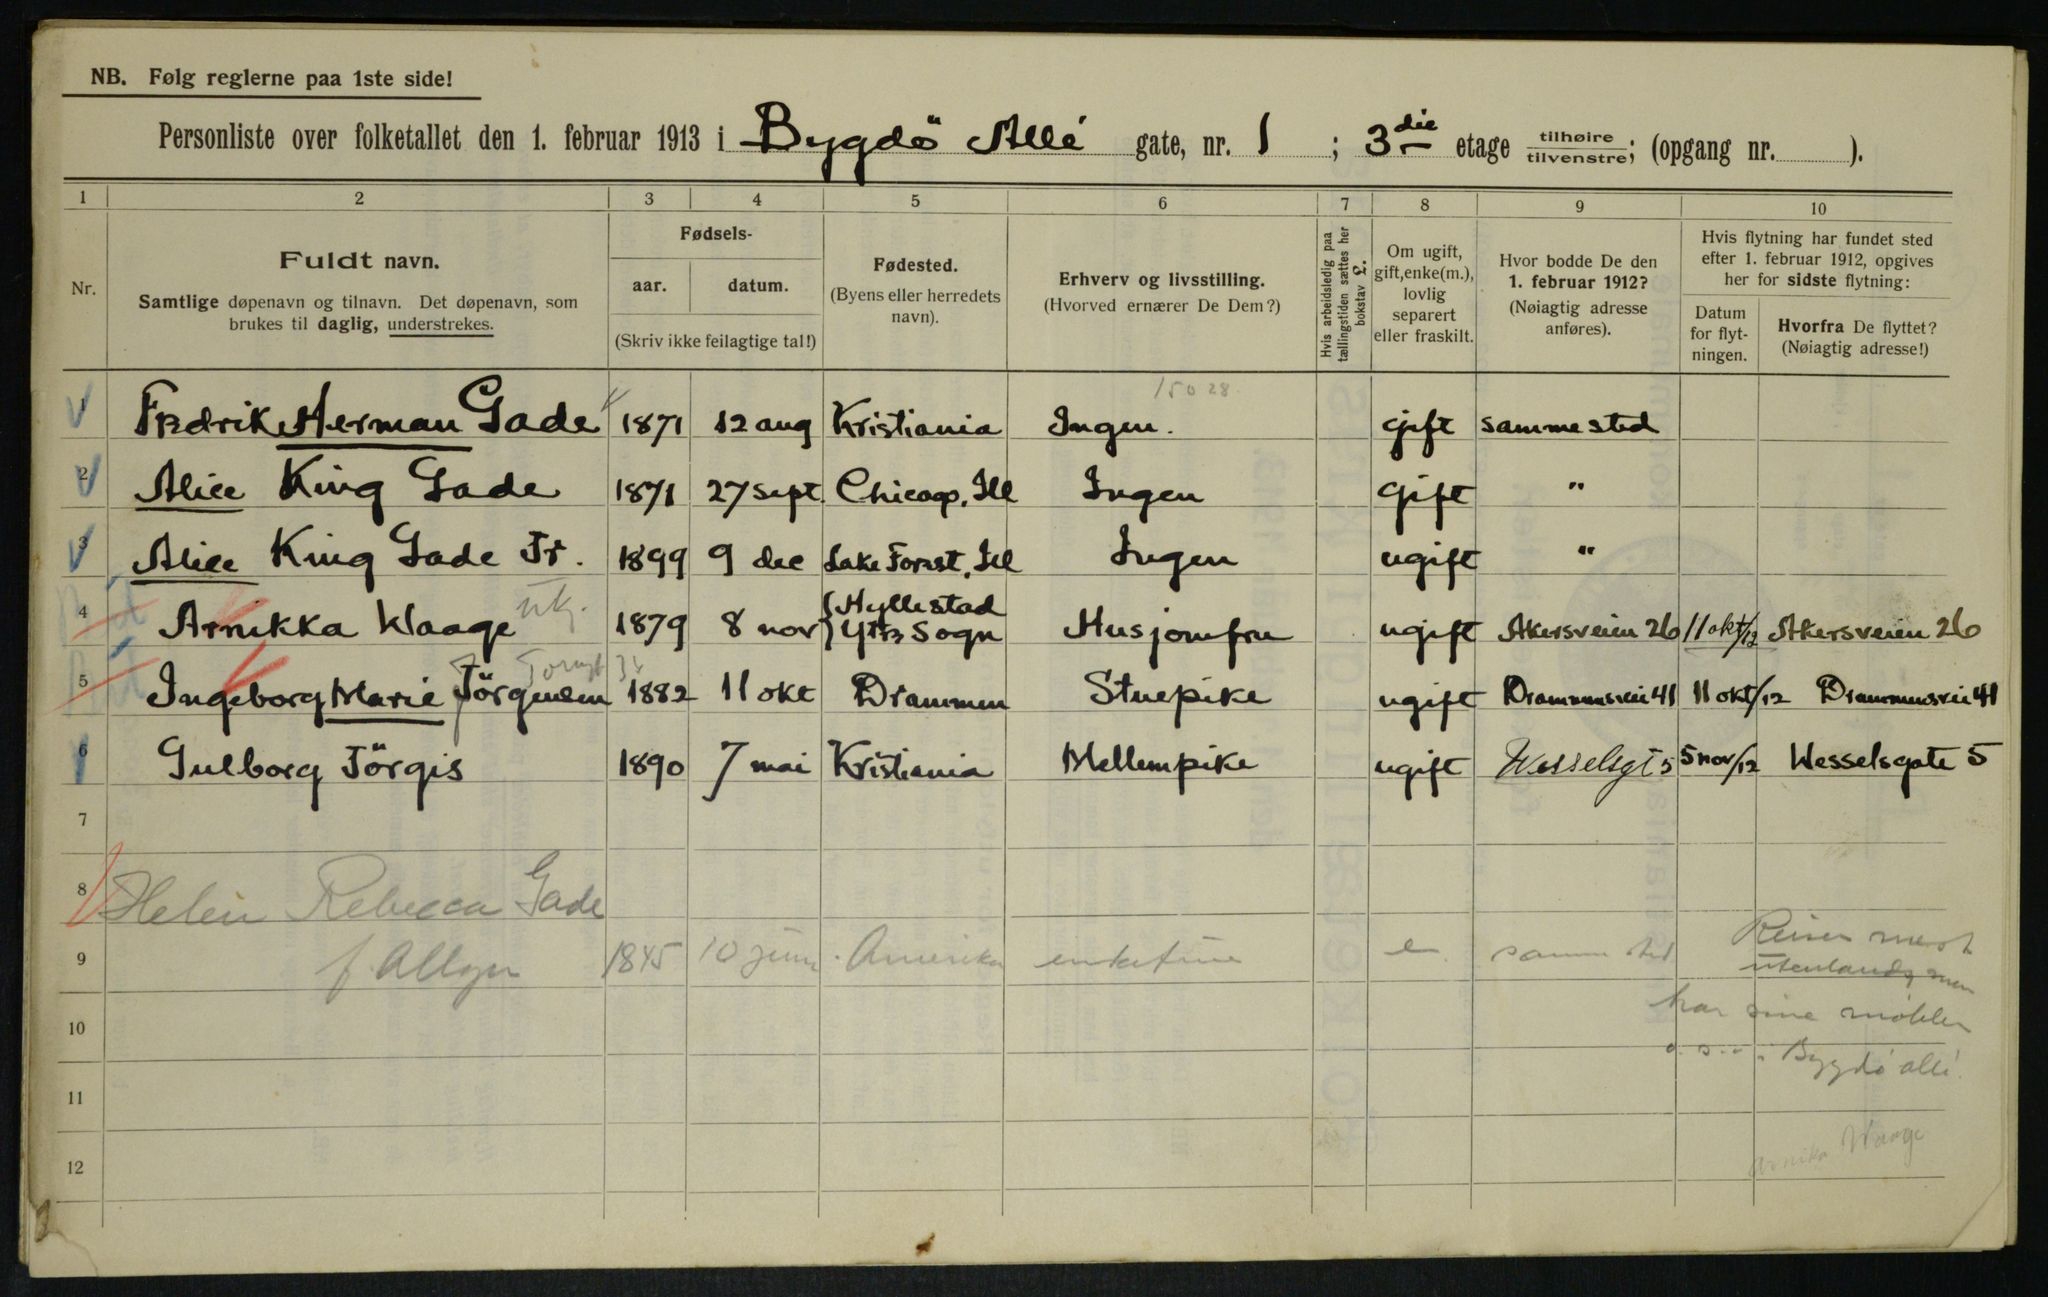 NB. Følg reglerne paa 1ste side!
Personliste over folketallet den 1. februar 1913 i Bygdö Allé gate, nr. 1 ; 3die etage tilhøire/tilvenstre; (opgang nr. ).
1 2 3 4 5 6 7 8 9 10
Nr.
Fuldt navn.
Samtlige døpenavn og tilnavn. Det døpenavn, som
brukes til daglig, understrekes.
Fødsels-
aar. datum.
(Skriv ikke feilagtige tal!)
Fødested.
(Byens eller herredets
navn).
Erhverv og livsstilling.
(Hvorved ernærer De Dem?)
Hvis arbeidsledig paa
tællingstiden sættes her
bokstav L.
Om ugift,
gift, enke(m.),
lovlig
separert
eller fraskilt.
Hvor bodde De den
1. februar 1912?
(Nøiagtig adresse
anføres).
Hvis flytning har fundet sted
efter 1. februar 1912, opgives
her for sidste flytning:
Datum
for flyt-
ningen.
Hvorfra De flyttet?
(Nøiagtig adresse!)
15028.
1 Fredrik Herman Gade 1871 12 aug Kristiania Ingen. gift samme sted
2 Alice King Gade 1871 27 sept. Chicago, Ill Ingen gift "
3 Alice King Gade Jr. 1899 9 dec Lake Forest, Ill Ingen ugift "
4 Arnikka Waage 1879 8 nov Hyllestad Ytre Sogn Husjomfru ugift Akersveien 26 11 okt/12 Akersveien 26
5 Ingeborg Marie Jörgensen 1882 11 okt Drammen Stuepike ugift Drammensvei 41 11 okt/12 Drammensvei 41
6 Gulborg Jörgis 1890 7 mai Kristiania Mellempike ugift Wesselsgt 5 5 nov/12 Wesselsgate 5
7
8 Helen Rebecca Gade
9 f. Allyn 1845 10 juni Amerika enkefrue e samme sted Reiser mest
utenlands, men
10 har sine møbler
o.s.v. i Bygdö allé.
11
12 Arnika Waage